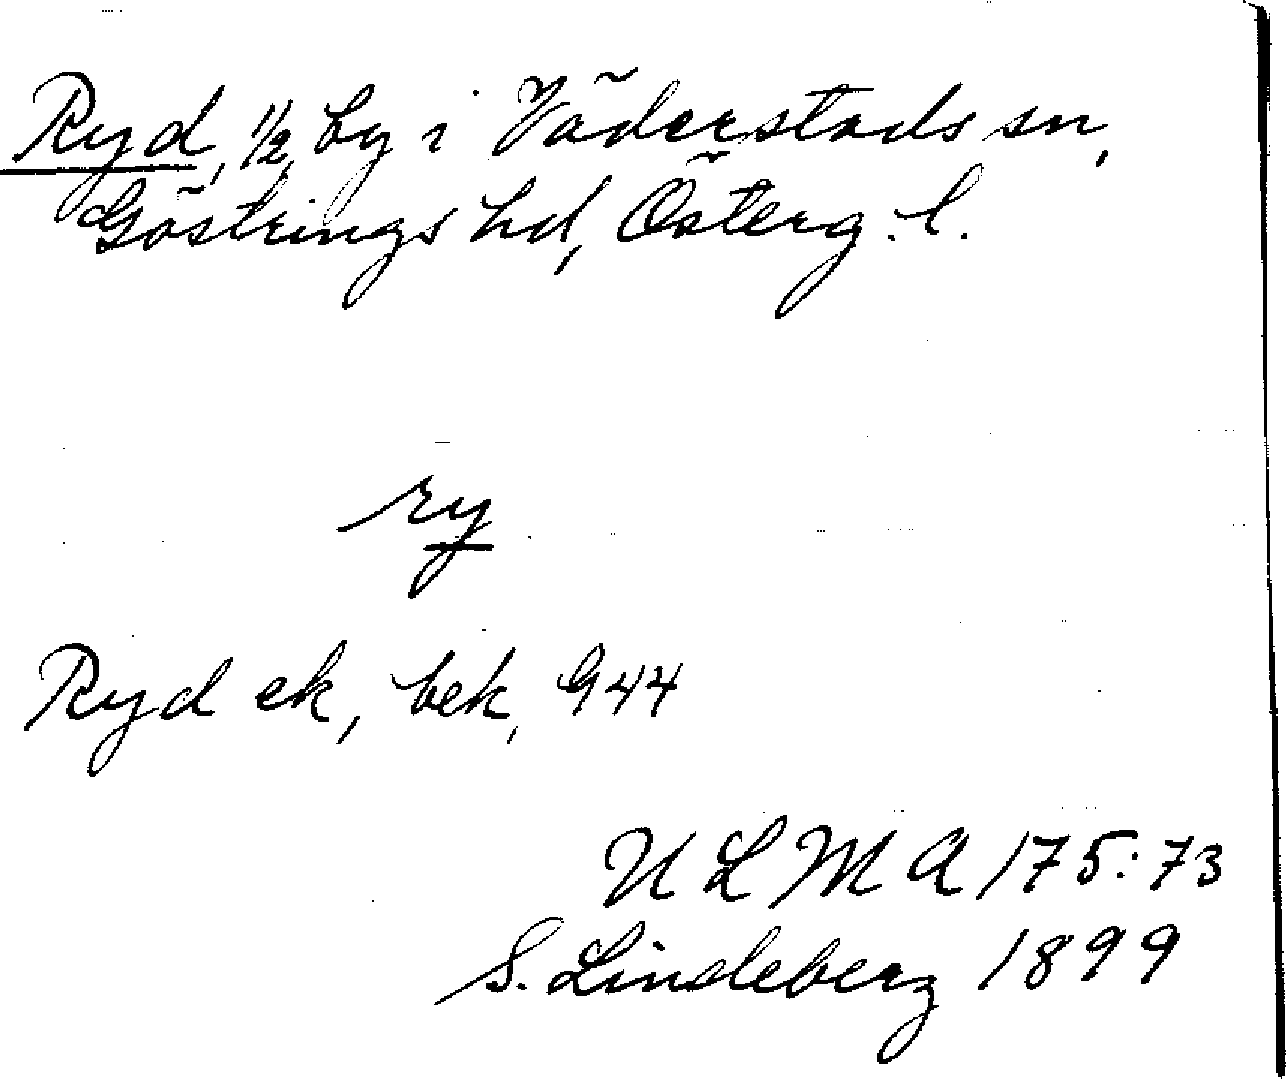 Ryd, 1/2, by i Väderstads sn,
Göstrings hd, Österg. l.
ry
Ryd ek, bek, 944
ULMA 175:73
S. Lindeberg 1899